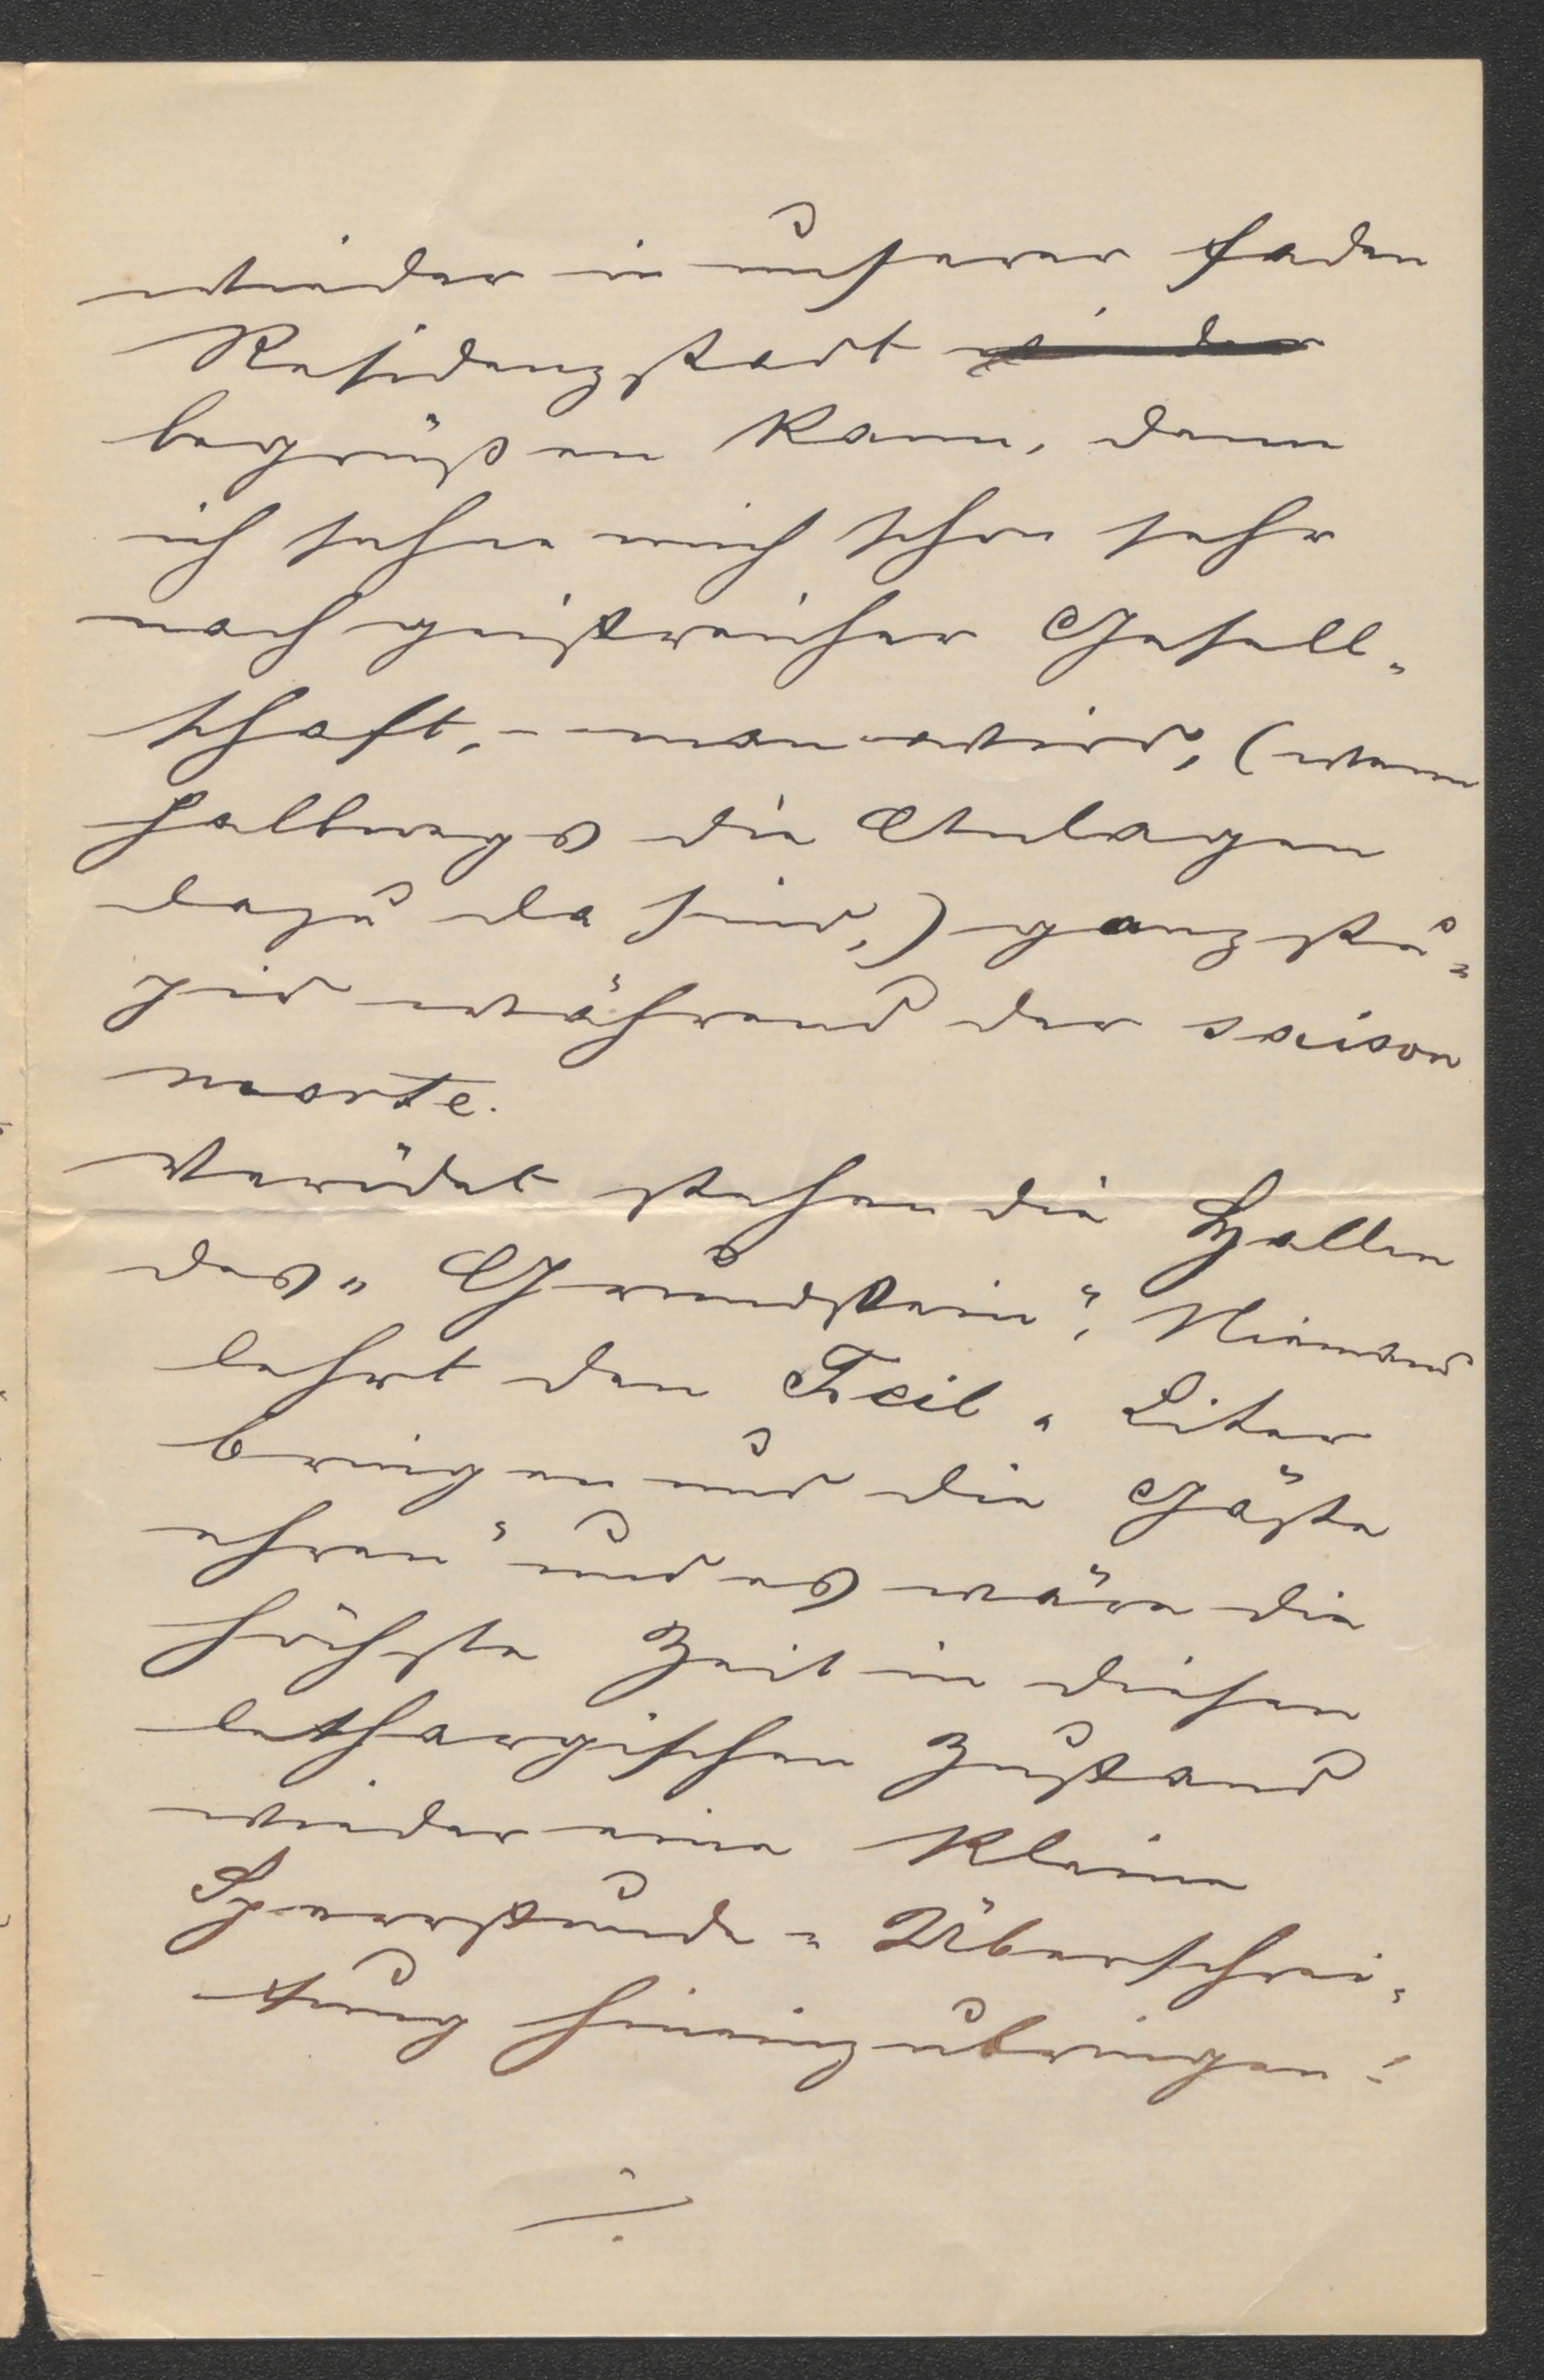 wieder in unserer faden
Residenzstadt wieder
begrüßen kann, denn
ich sehne mich schon sehr
nach geistreicher Gesell-
schaft, - man wird, (wenn
halbwegs die Anlagen
dazu da sind,) ganz stu-
pid während der saison
morte.
Verödet stehen die Hallen
des „Grundstein“, Niemand
lehrt den Feil „Liter
bringen und die Gäste
ehren“ und es wäre die
höchste Zeit in diesen
lethargischen Zustand
wieder eine kleine
Sperrstunde-Überschrei-
tung hineinzubringen!
./.